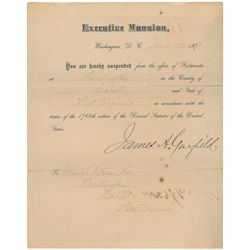 Executive Mansion,
Washington, D. C. 1871
You are hereby suspended from the office of Postmaster
at Huntington in the County
of Cabell and State of
West Virginia in accordance with the
terms of the 1768th section of the Revised Statutes of the United
States.
James A. Garfield
To
Huntington
Cabell
West Virginia